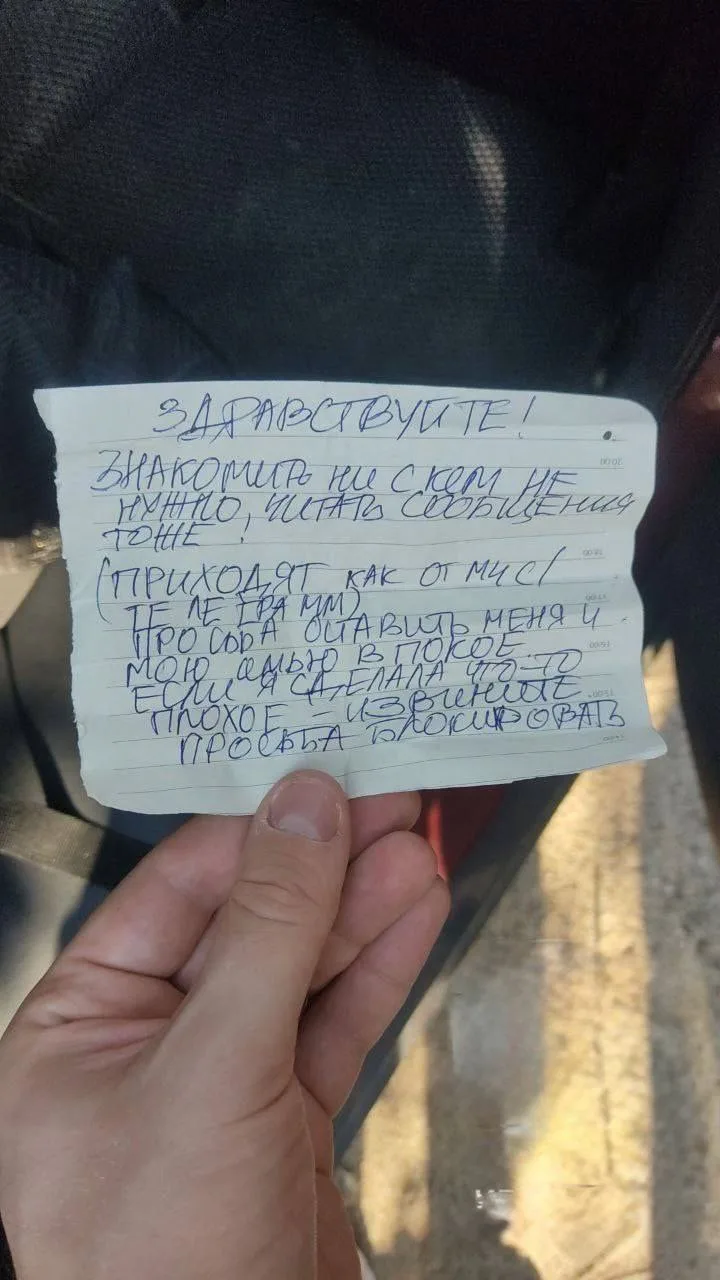 ЗДРАВСТВУЙТЕ!
ЗНАКОМИТЬ НИ С КЕМ НЕ
НУЖНО, ЧИТАТЬ СООБЩЕНИЯ
ТОЖЕ.
(ПРИХОДЯТ КАК ОТ МЧС/
ТЕЛЕГРАММ)
ПРОСЬБА ОСТАВИТЬ МЕНЯ И
МОЮ СЕМЬЮ В ПОКОЕ.
ЕСЛИ Я СДЕЛАЛА ЧТО-ТО
ПЛОХОЕ - ИЗВИНИТЕ
ПРОСЬБА БЛОКИРОВАТЬ